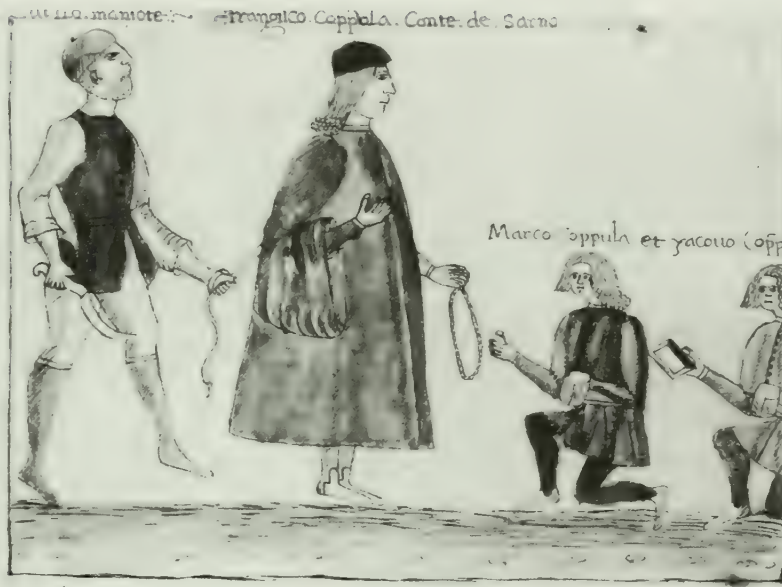 mamote frangico Coppola. Conte. de. Sarno
Marco oppula et yacouo (opp